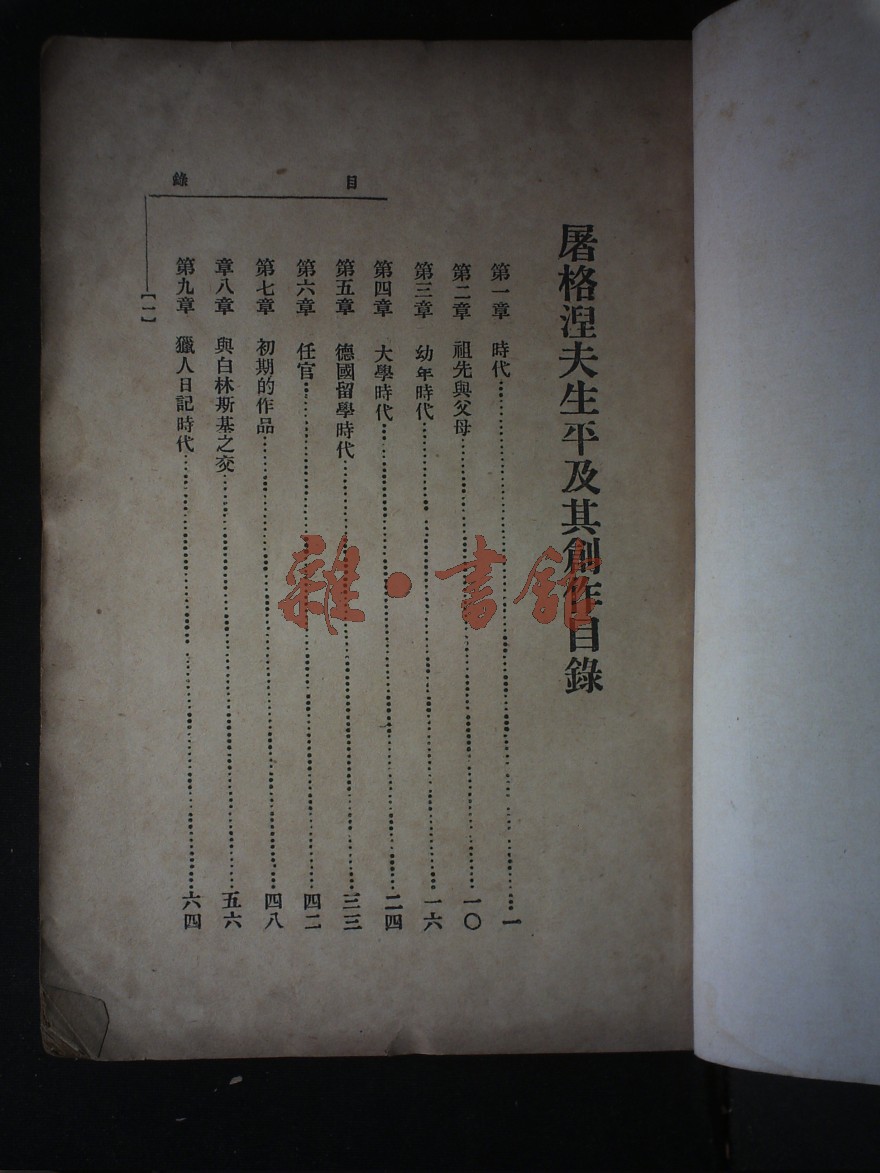 屠格涅夫生平及其創作目錄
第一章 時代……一
第二章 祖先與父母……一〇
第三章 幼年時代……一六
第四章 大學時代……二四
第五章 德國留學時代……三三
第六章 任官……四二
第七章 初期的作品……四八
章八章 與白林斯基之交……五六
第九章 獵人日記時代……六四
目錄
[一]
雜·書館